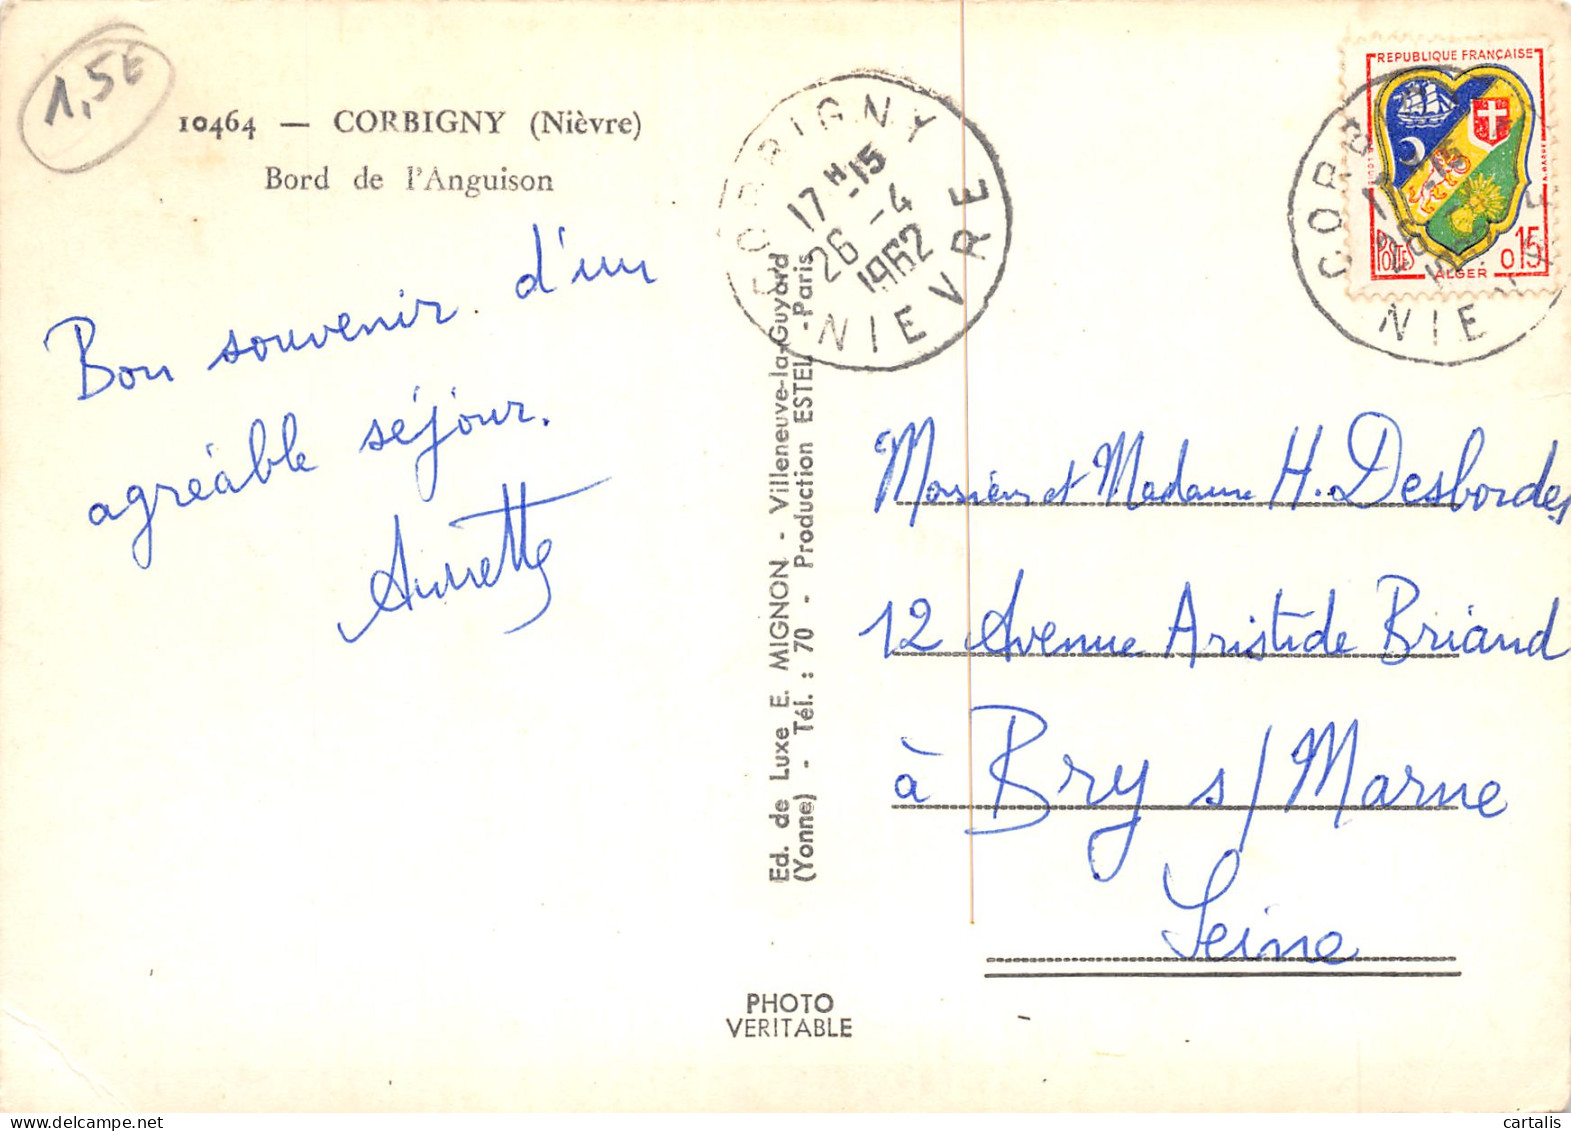 1,5€
10464 — CORBIGNY (Nièvre)
Bord de l'Anguison
Bon souvenir d'un
agréable séjour.
CORBIGNY
17 H-15
26 -4
1962
NIEVRE
REPUBLIQUE FRANÇAISE
POSTES
ALGER
0,15
CORB
NIE
Ed. de Luxe E. MIGNON - Villeneuve-la-Guyard
(Yonne) - Tél. : 70 - Production ESTEL -Paris
Monsieur et Madame H. Desbordes
12 Avenue Aristide Briand
à Bry s/ Marne
Seine
PHOTO
VERITABLE
cartalis